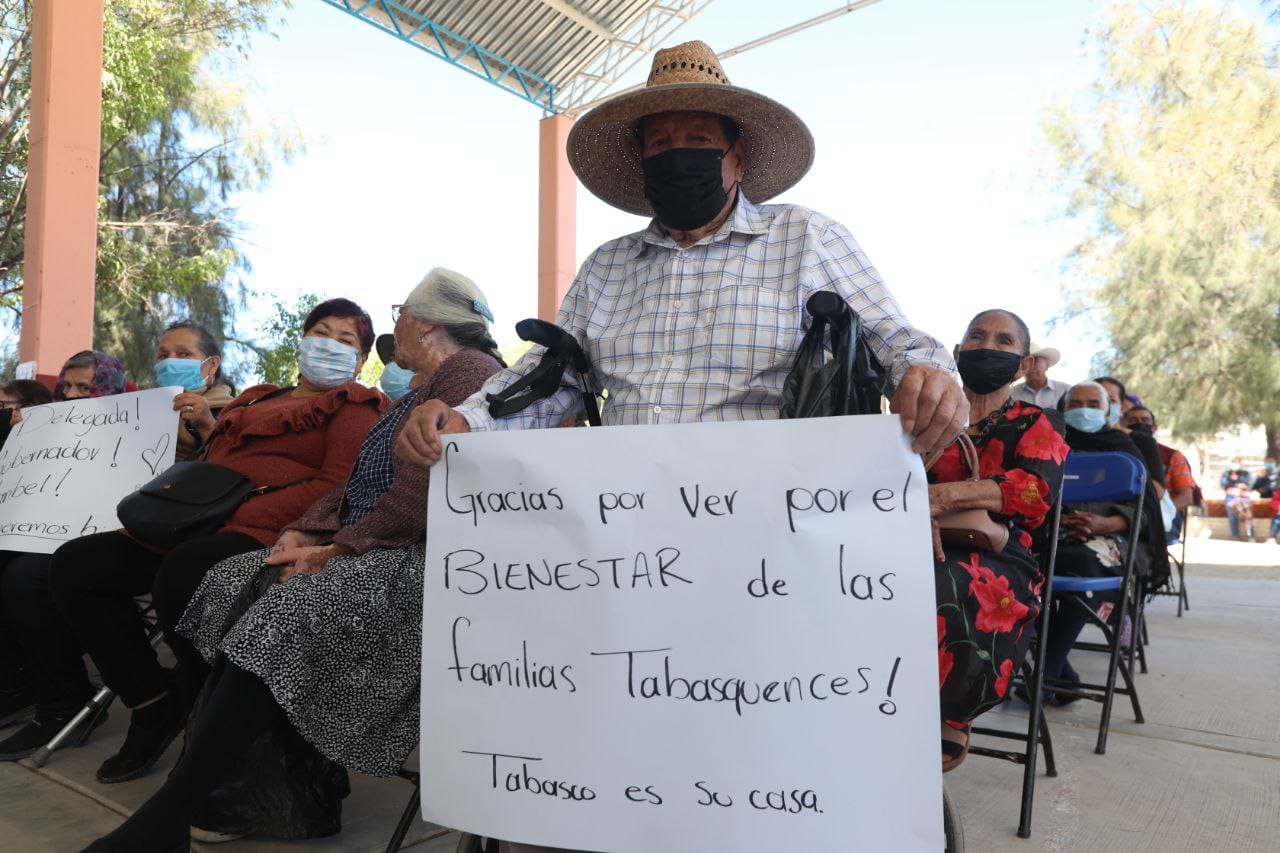 Delegada!
Gobernador!
eremos
Gracias por ver por el
BIENESTAR de las
familias Tabasquences!
Tabasco es su casa.